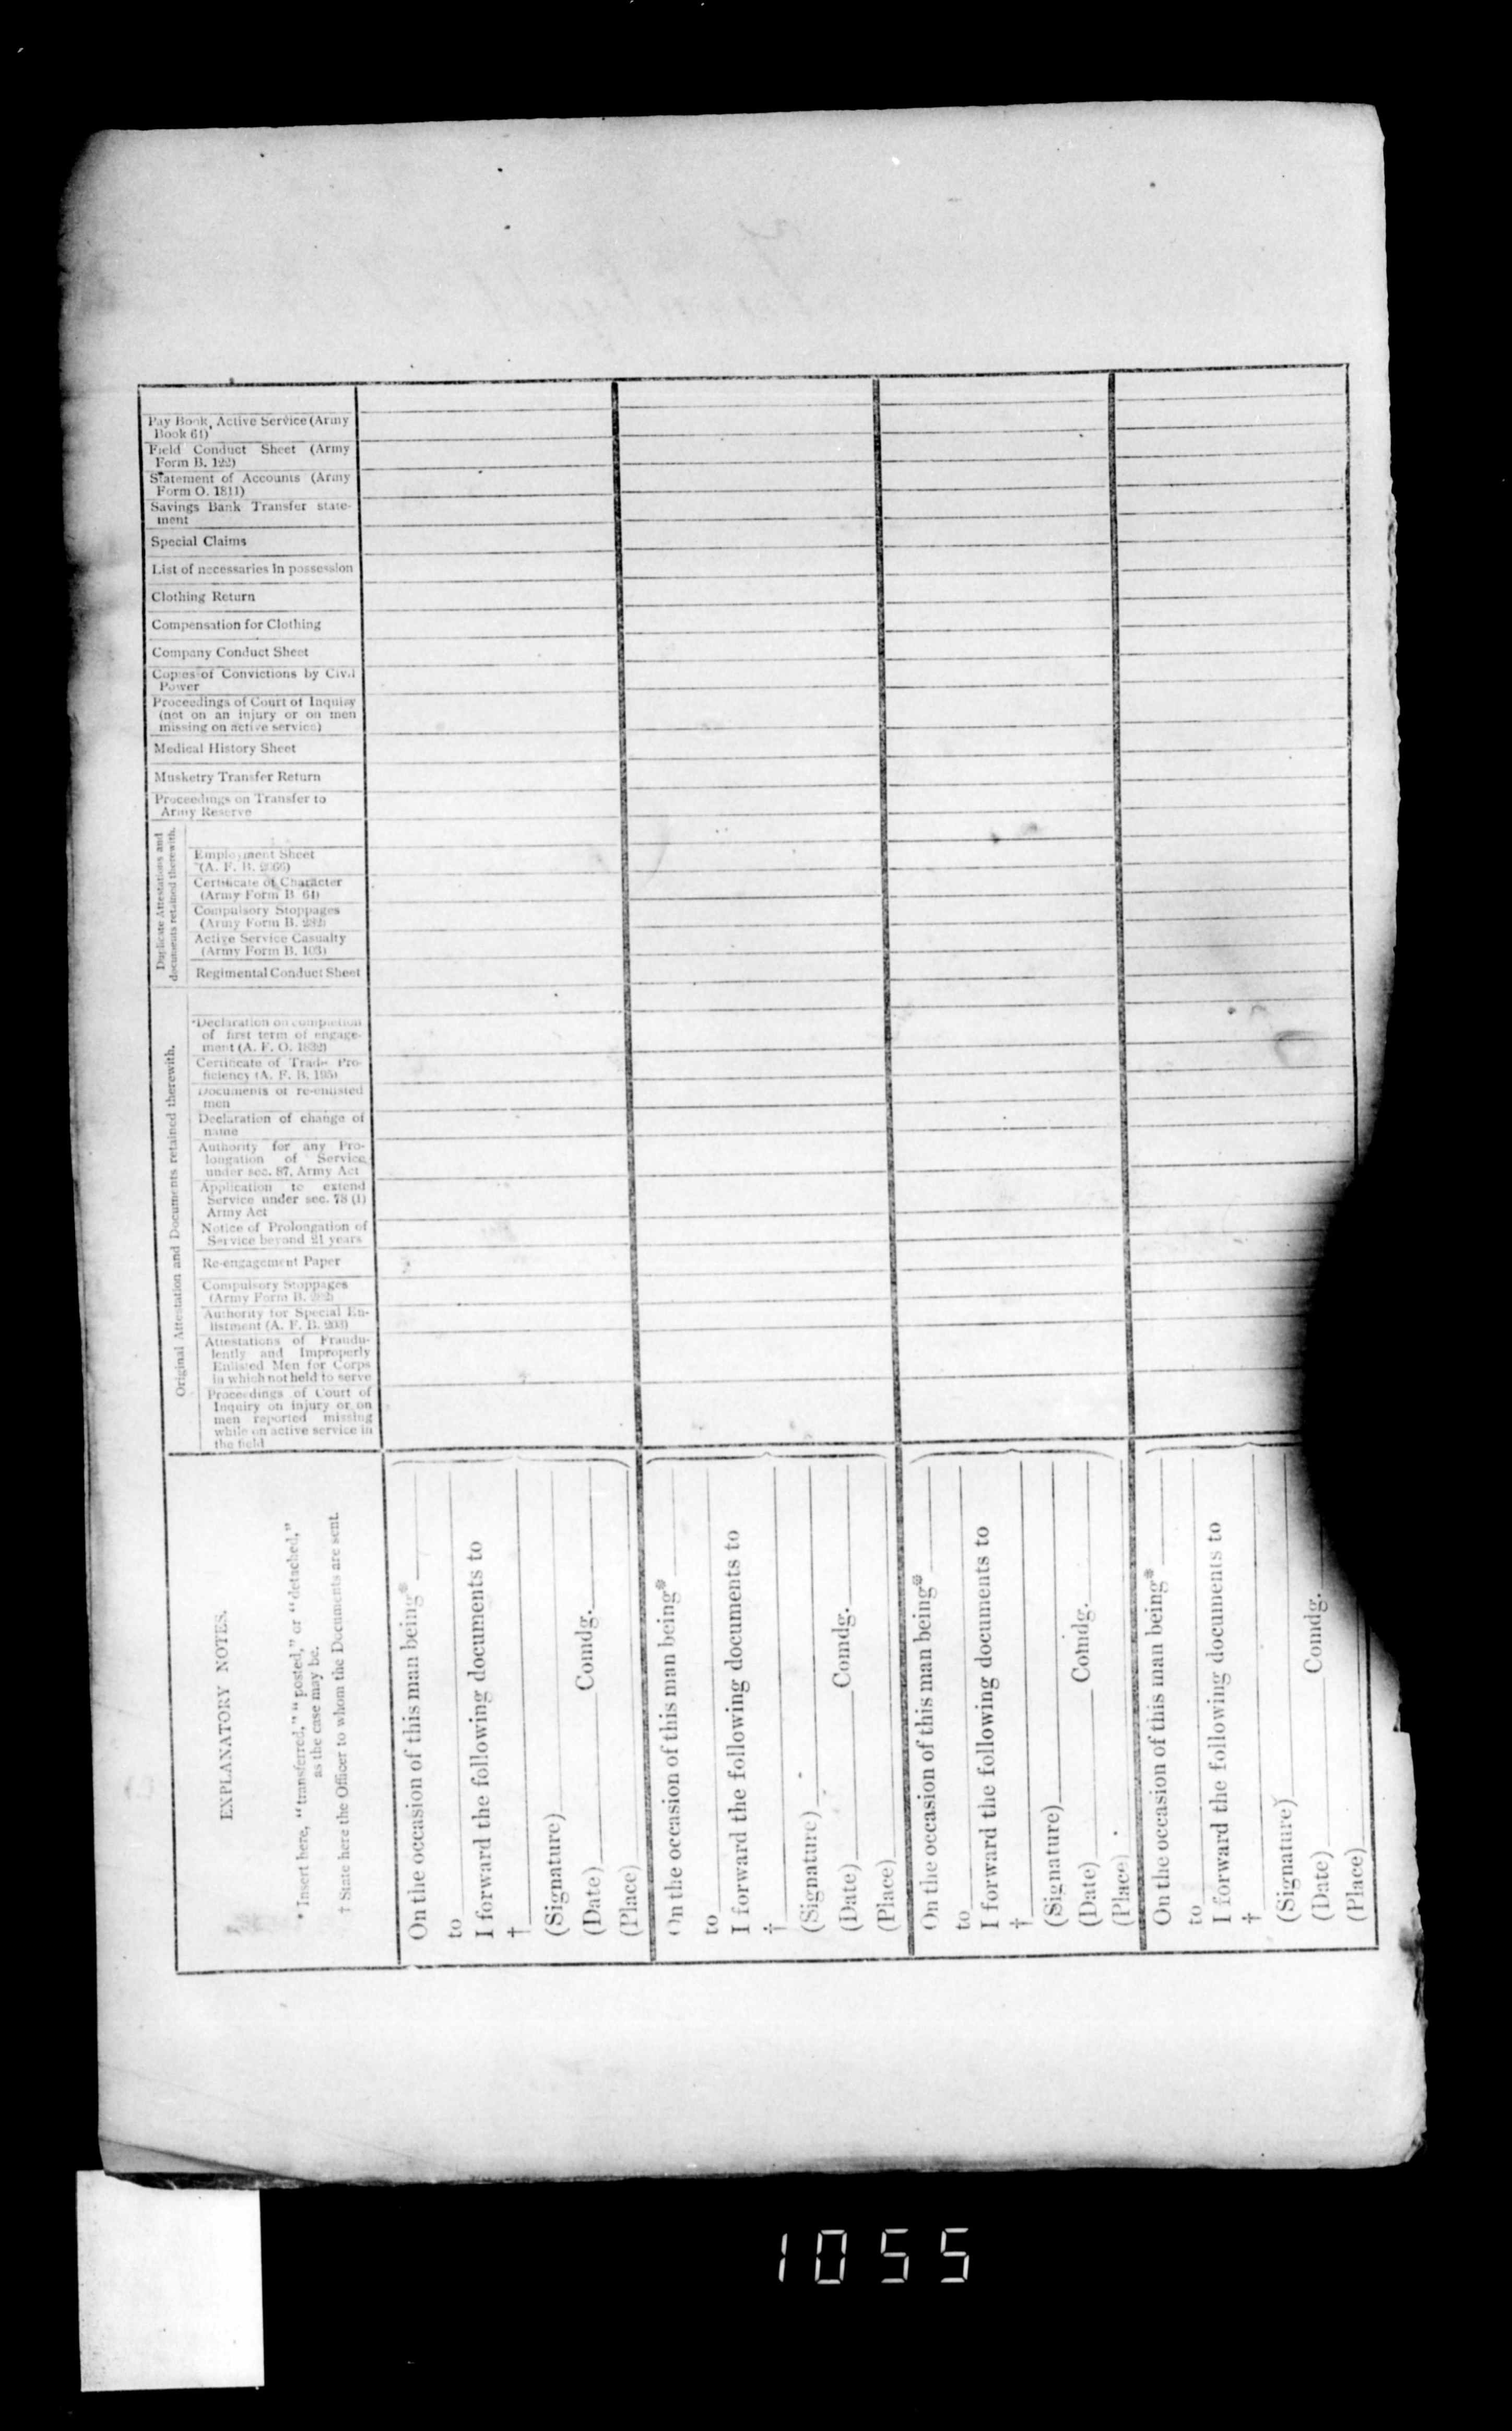 Pay Book, Active Service (Army
Book 64)
Field Conduct Sheet (Army
Form B. 122)
Statement of Accounts (Army
Form O. 1811)
Savings Bank Transfer state-
ment
Special Claims
List of necessaries in possession
Clothing Return
Compensation for Clothing
Company Conduct Sheet
Copies of Convictions by Civil
Power
Proceedings of Court of Inquiry
(not on an injury or on men
missing on active service)
Medical History Sheet
Musketry Transfer Return
Proceedings on Transfer to
Army Reserve
Duplicate Attestations and
documents retained therewith.
Employment Sheet
(A. F. B. 2066)
Certificate of Character
(Army Form B. 64)
Compulsory Stoppages
(Army Form B. 282)
Active Service Casualty
(Army Form B. 103)
Regimental Conduct Sheet
Original Attestation and Documents retained therewith.
*Declaration on completion
of first term of engage-
ment (A. F. O. 1832)
Certificate of Trade Pro-
ficiency (A. F. B. 195)
Documents of re-enlisted
men
Declaration of change of
name
Authority for any Pro-
longation of Service
under sec. 87, Army Act
Application to extend
Service under sec. 78 (1)
Army Act
Notice of Prolongation of
Service beyond 21 years
Re-engagement Paper
Compulsory Stoppages
(Army Form B.
Authority for Special En-
listment (A. F. B. 203)
Attestations of Fraudu-
lently and Improperly
Enlisted Men for Corps
in which not held to serve
Proceedings of Court of
Inquiry on injury or on
men reported missing
while on active service in
the field
EXPLANATORY NOTES.
* Insert here, "transferred," "posted," or "detached,"
as the case may be.
† State here the Officer to whom the Documents are sent.
On the occasion of this man being*
to
I forward the following documents to
†
(Signature)
(Date) Comdg.
(Place)
On the occasion of this man being*
to
I forward the following documents to
†
(Signature)
(Date) Comdg.
(Place)
On the occasion of this man being*
to
I forward the following documents to
†
(Signature)
(Date) Comdg.
(Place)
On the occasion of this man being*
to
I forward the following documents to
†
(Signature)
(Date) Comdg.
(Place)
1055